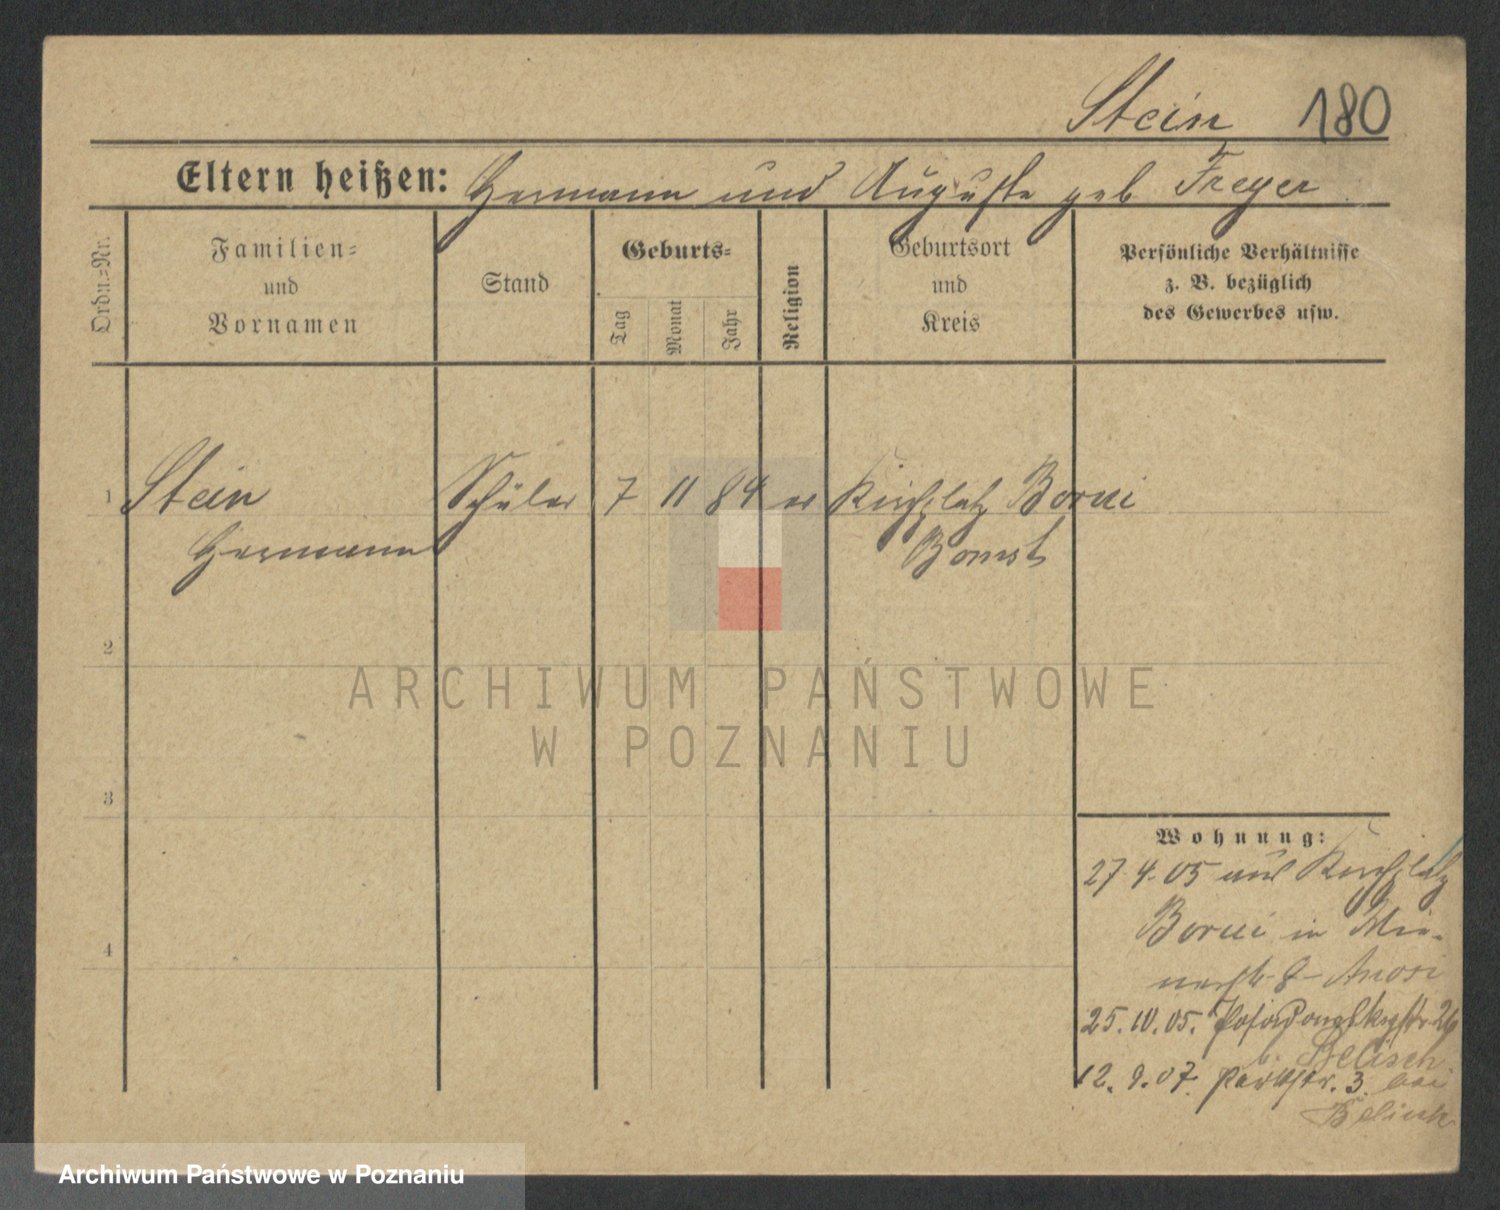 Stein 180
Eltern heißen: Hermann und Auguste geb. Freyer
Ordn.=Nr.
Familien=
und
Vornamen
Stand
Geburts=
Tag
Monat
Jahr
Religion
Geburtsort
und
Kreis
Persönliche Verhältnisse
z. B. bezüglich
des Gewerbes usw.
1 Stein Schüler 7 11 84 ev Kirchplatz Borui
Hermann Bomst
2
ARCHIWUM PAŃSTWOWE
W POZNANIU
3
Wohnung:
27.4.05 aus Kirchplatz
Borui in
4
25.10.05. 26
b. Belisch
12.9.07. Parkstr. 3. bei
Archiwum Państwowe w Poznaniu